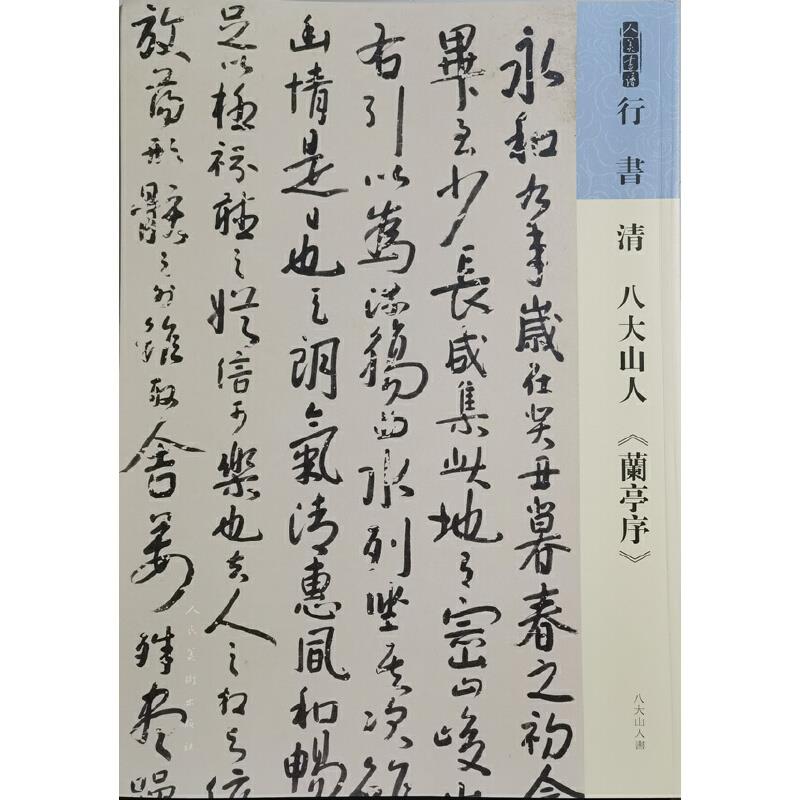 人美书谱
行書
清 八大山人《蘭亭序》
八大山人書
永和九年歲在癸丑暮春之初會
畢至少長咸集此地有崇山峻
右引以為流觴曲水列坐其次雖
幽情是日也天朗氣清惠風和暢
足以極視聽之娛信可樂也夫人之相與俯
放蕩形骸之外雖取舍萬殊靜躁
人民美術出版社